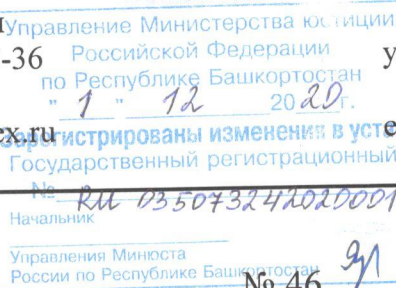 Управление Министерства юстиции
-36 Российской Федерации у
по Республике Башкортостан
" 1 " 12 2020г.
ex.ru зарегистрированы изменения в уста е
Государственный регистрационный
№ RU 035073242020001
Начальник
Управления Минюста
России по Республике Башкортостан
№ 46